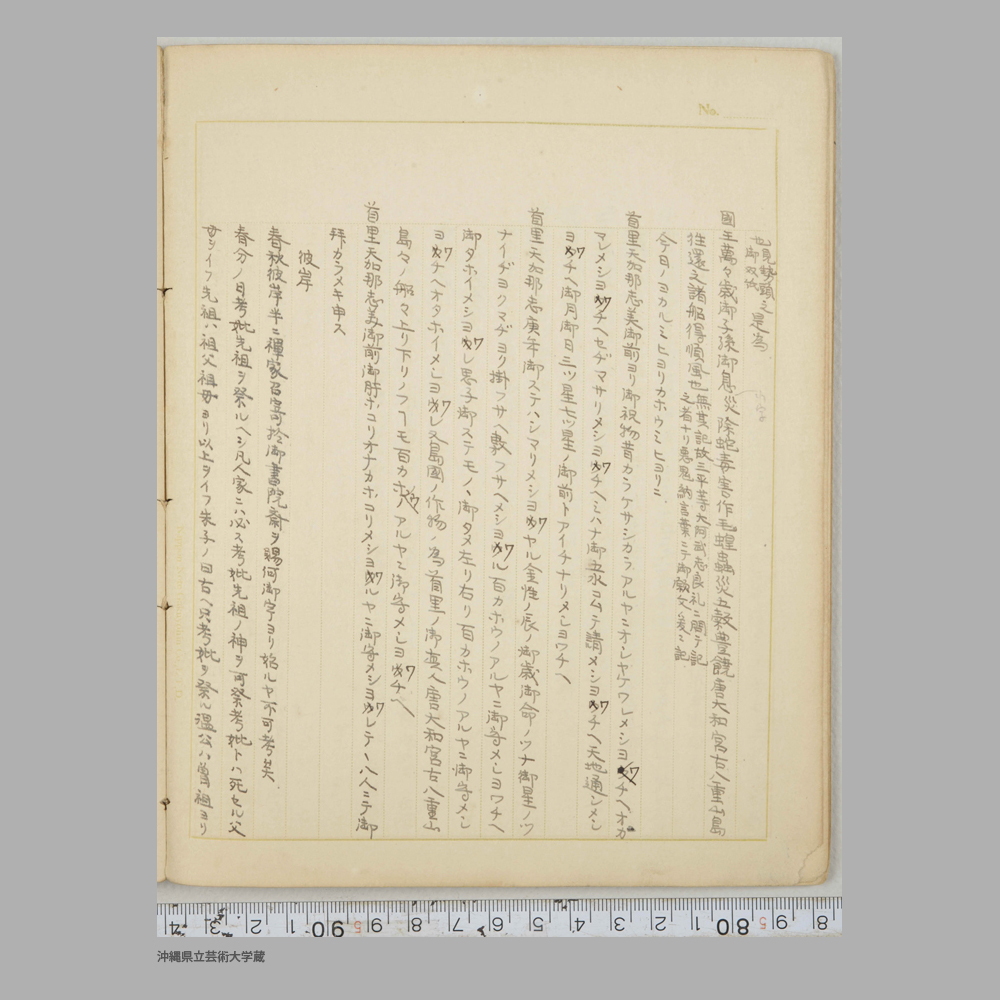 No.
也見勢頭之是為
御双紙
國王萬々歳御子孫御息災除蛇毒害作毛蝗蟲災五穀豊饒唐大和宮古八重山島
往還之諸船得順風也無其記故三平等大阿武志良礼ニ間テ記
之者ナリ悪鬼納言葉ニテ御敬文爰ニ記
今日ノヨカルヒヨリカホウヒヨリニ
首里天加那志美御前ヨリ御祝物昔カラケサシカラアルヤニオレヤケワレメシヨワチヘオカ
マレメシヨワチヘセヂマサリメシヨワチヘミハナ御五水コムテ請メシヨワチヘ天地通シメシ
ヨワチヘ御月御日三ツ星七ツ星ノ御前トアイチナリメシヨワチヘ
首里天加那志庚年御ステハシマリメシヨワヤル金性ノ辰ノ御歳御命ノツナ御星ノツ
ナイヂヨクマヂヨリ掛フサヘ敷フサヘメシヨワル百カホウノアルヤニ御守メシヨワチヘ
御タホイメシヨワレ思子御ステモノヽ御タメ左リ右リ百カホウノアルヤニ御守メシ
ヨワチヘオタホイメシヨワレ又島國ノ作物ノ為首里ノ御真人唐大和宮古八重山
島々ノ船々上リ下リノフモ百カホウアルヤニ御守メシヨワチヘ
首里天加那志美御前御肝ホコリオナカホコリメシヨワルヤニ御守メシヨワレテヽ八人ニテ御
拜カラメキ申ス
彼岸
春秋彼岸半ニ禅家召寄於御書院斎ヲ賜何御宇ヨリ始ルヤ不可考矣
春分ノ日考妣先祖ヲ祭ルヘシ凡人家ニハ必ス考妣先祖ノ神ヲ可祭考妣トハ死セル父
母ヲイフ先祖ハ祖父祖母ヨリ以上ヲイフ朱子ノ曰古ヘ只考妣ヲ祭ル温公ハ曽祖ヨリ
沖縄県立芸術大学蔵